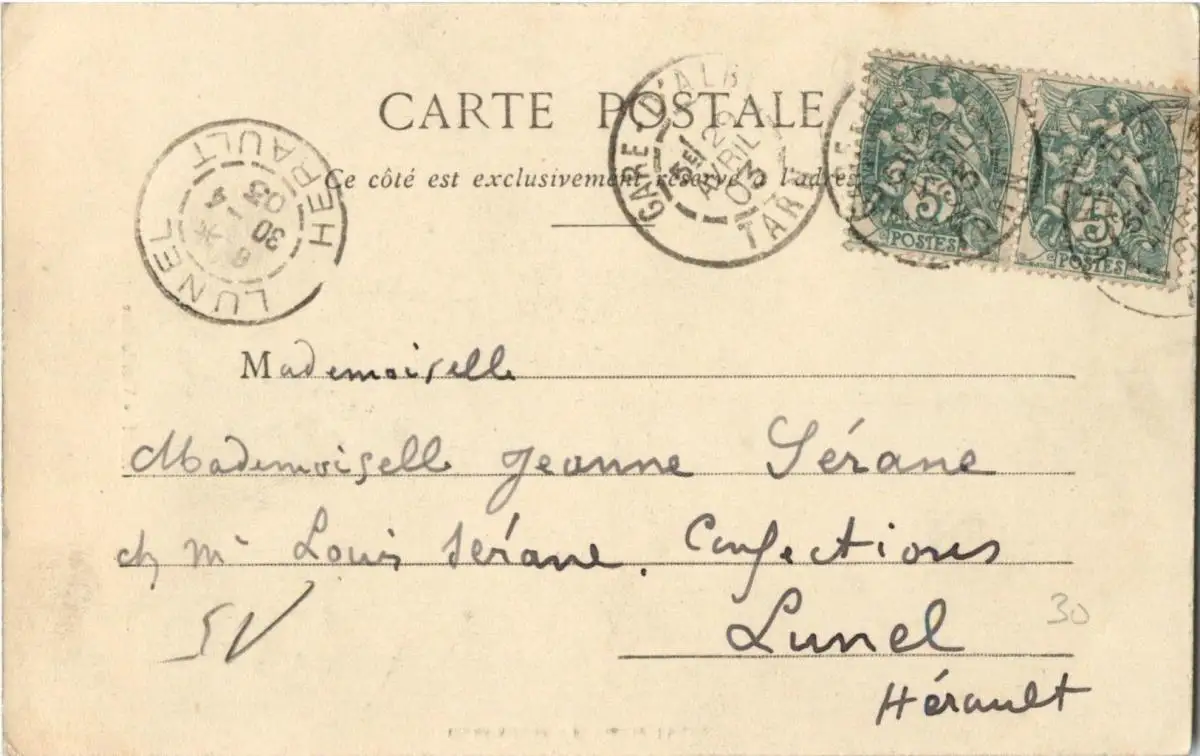 CARTE POSTALE
Ce côté est exclusivement réservé à l'adresse
GARE D'ALB
29
AVRIL
03
TARN
LUNEL
HERAULT
30
4
03
5
POSTES
5
POSTES
Mademoiselle
Mademoiselle Jeanne Sérane
ch Mr Louis Sérane. Confections
Lunel
30
Hérault